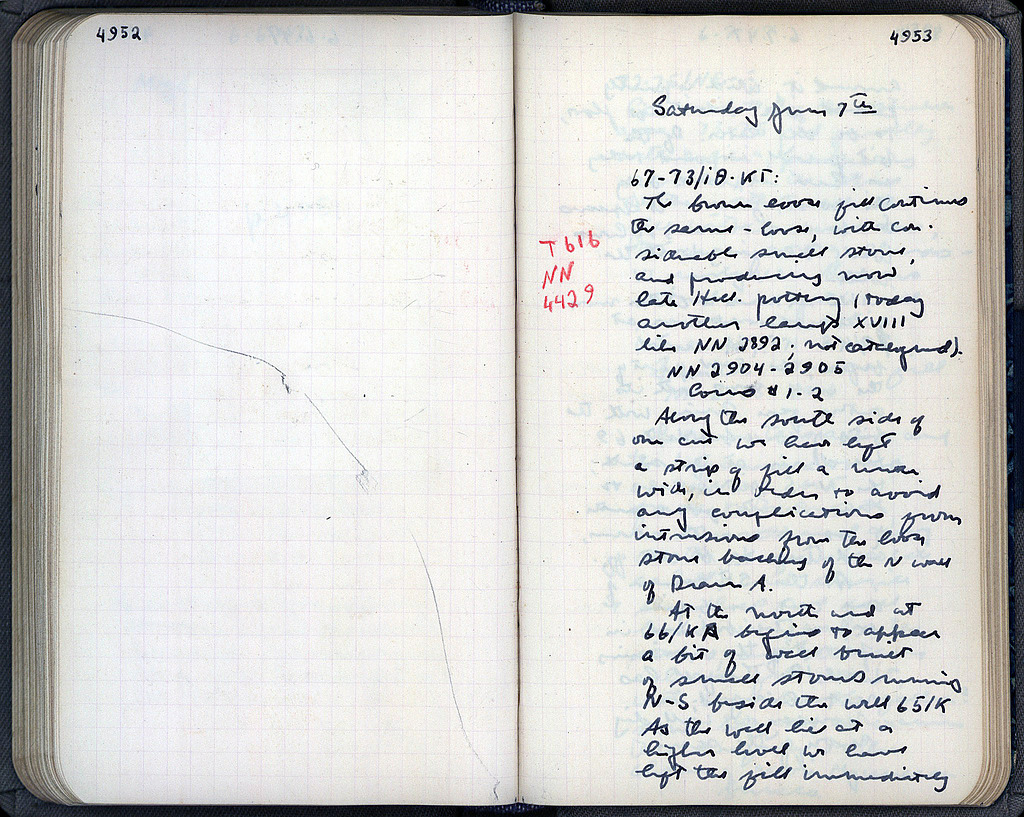 4952
4953
Saturday June 7th
67-73/ΙΘ-ΚΓ:
The brown loose fill continues
the same - loose, with con-
siderable small stones,
and producing now
late Hell. pottery (today
another lamp XVIII
like NN 2892; not catalogued).
NN 2904-2905
Coins #1-2
T 616
NN
4429
Along the south side of
our cut we have left
a strip of fill a meter
wide, in order to avoid
any complications from
intrusions from the loose
stone backing of the N wall
of Drain A.
At the north end at
66/ΚΑ begins to appear
a bit of wall built
of small stones running
N-S beside the well 65/Κ
As the wall lies at a
higher level we have
left the fill immediately